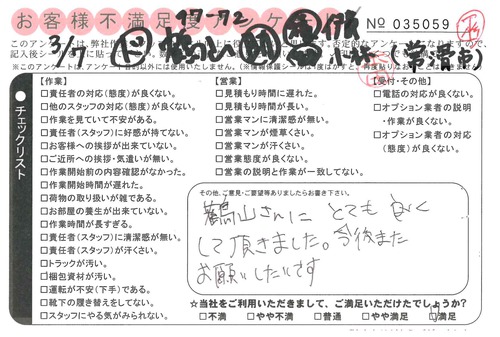 お客様不満足度
ケ
No 035059
3/17
※このアンケートは、アンケート目的以外には使用いたしません。
チェックリスト
【作業】
□責任者の対応(態度)が良くない。
□他のスタッフの対応(態度)が良くない。
□作業を見ていて不安がある。
□責任者(スタッフ)に好感が持てない。
□お客様への挨拶が出来ていない。
□ご近所への挨拶・気遣いが無い。
□作業開始前の内容確認がなかった。
□作業開始時間が遅れた。
□荷物の取り扱いが雑である。
□お部屋の養生が出来ていない。
□作業時間が長すぎる。
□責任者(スタッフ)に清潔感が無い。
□責任者(スタッフ)が汗くさい。
□トラックが汚い。
□梱包資材が汚い。
□運転が不安(下手)である。
□靴下の履き替えをしてない。
□スタッフにやる気がみられない。
【営業】
□見積もり時間に遅れた。
□見積もり時間が長い。
□営業マンに清潔感が無い。
□営業マンが煙草くさい。
□営業マンが汗くさい。
□営業態度が良くない。
□営業の説明と作業が一致してない。
【受付・その他】
□電話の対応が良くない。
□オプション業者の説明
・作業が良くない。
□オプション業者の対応
(態度)が良くない。
その他、ご意見・ご要望等ありましたらお書き下さい。
鶴山さんに とても 良く
して頂きました。今後また
お願いしたいです
☆当社をご利用いただきまして、ご満足いただけたでしょうか?
□不満 □やや不満 □普通 □やや満足 □満足